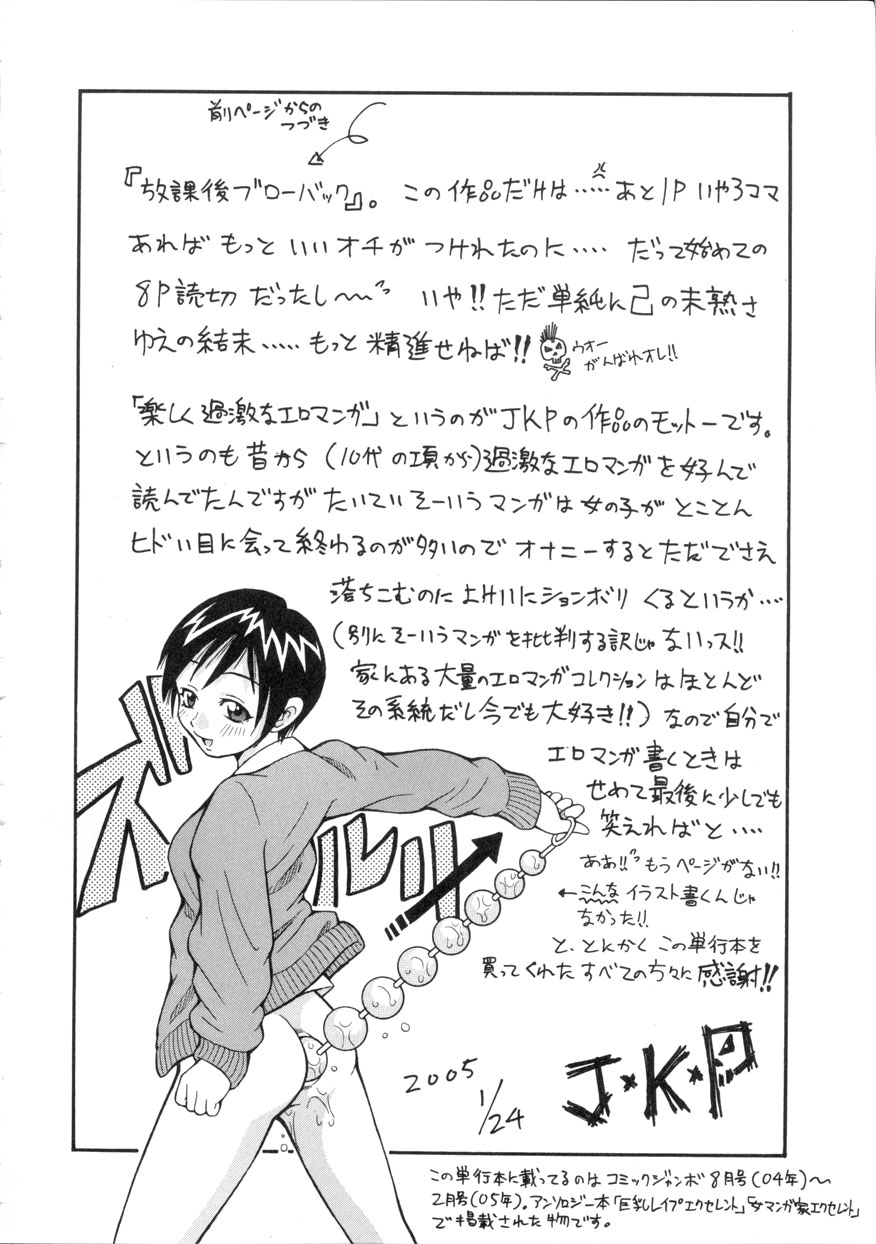 前ページからの
つづき
『放課後ブローバック』。この作品だけは……あと1P いや3コマ
あればもっといいオチがつけれたのに‥‥ だって始めての
8P読切だったし〜〜 いや!!ただ単純に己の未熟さ
ゆえの結末‥‥‥もっと精進せねば!!
ウオー
がんばれオレ!!
「楽しく過激なエロマンガ」というのがJKPの作品のモットーです。
というのも昔から(10代の項から)過激なエロマンガを好んで
読んでたんですがたいていそーいうマンガは女の子がとことん
ヒドい目に会って終わるのが多いのでオナニーするとただでさえ
落ちこむのによけいにションボリくるというか‥‥
(別にそーいうマンガを批判する訳じゃないっス!!
家にある大量のエロマンガコレクションはほとんど
その系統だし今でも大好き!!)なので自分で
エロマンガ書くときは
せめて最後に少しでも
笑えればと‥‥
ああ!!もうページがない!!
←こんなイラスト書くんじゃ
なかった!!
と、とにかくこの単行本を
買ってくれたすべての方々に感謝!!
ズルルリ
2005
1/24
J★K★P
この単行本に載ってるのはコミックジャンボ8月号(04年)〜
2月号(05年)。アンソロジー本「巨乳レイプエクセレント」「女マンガ家エクセレント」
で掲載された物です。